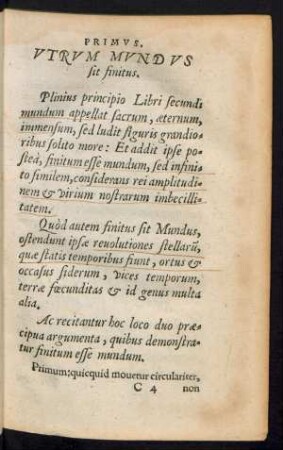 PRIMVS.
VTRVM MVNDVS
sit finitus.
Plinius principio Libri secundi
mundum appellat sacrum, æternum,
immensum, sed ludit figuris grandio-
ribus solito more: Et addit ipse po-
steà, finitum esse mundum, sed infini-
to similem, considerans rei amplitudi-
nem & virium nostrarum imbecilli-
tatem.
Quòd autem finitus sit Mundus,
ostendunt ipsæ reuolutiones stellarū,
quæ statis temporibus fiunt, ortus &
occasus siderum, vices temporum,
terræ fœcunditas & id genus multa
alia.
Ac recitantur hoc loco duo præ-
cipua argumenta, quibus demonstra-
tur finitum esse mundum.
Primum: quicquid mouetur circulariter,
C 4 non